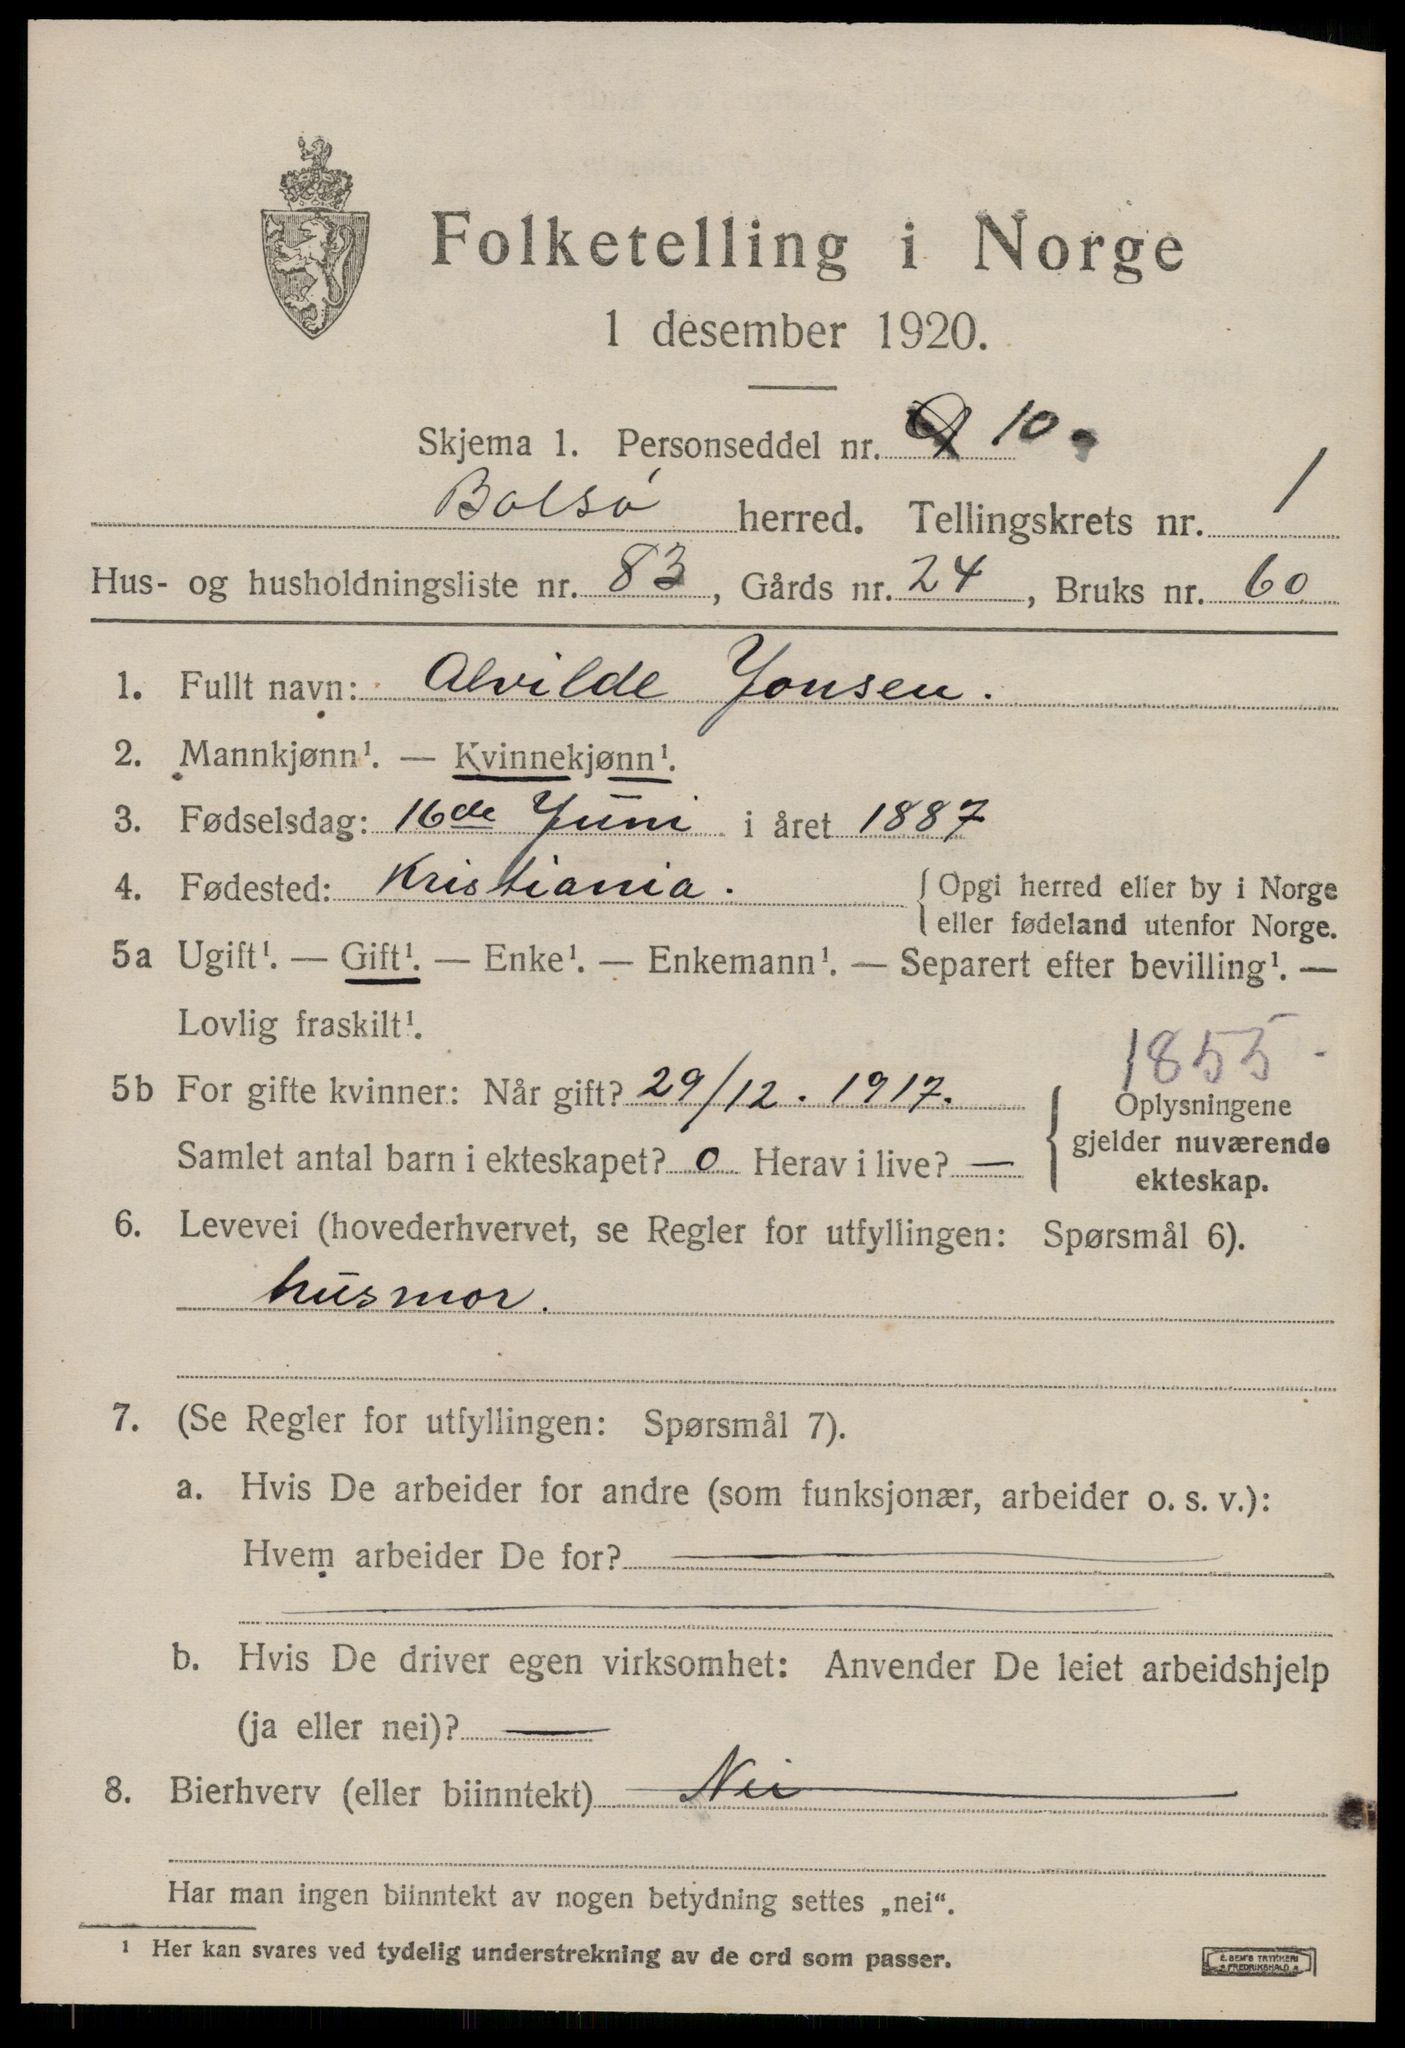 Folketelling i Norge
1 desember 1920.
Skjema 1. Personseddel nr. 10.
Bolsø herred. Tellingskrets nr. 1
Hus- og husholdningsliste nr. 83, Gårds nr. 24, Bruks nr. 60
1. Fullt navn: Alvilde Jonsen.
2. Mannkjønn¹. — Kvinnekjønn¹.
3. Fødselsdag: 16de Juni i året 1887
4. Fødested: Kristiania. { Opgi herred eller by i Norge
eller fødeland utenfor Norge.
5a Ugift¹. — Gift¹. — Enke¹. — Enkemann¹. — Separert efter bevilling¹. —
Lovlig fraskilt¹.
1855
5b For gifte kvinner: Når gift? 29/12. 1917. { Oplysningene
gjelder nuværende
Samlet antal barn i ekteskapet? 0 Herav i live? —
ekteskap.
6. Levevei (hovederhvervet, se Regler for utfyllingen: Spørsmål 6).
husmor.
7. (Se Regler for utfyllingen: Spørsmål 7).
a. Hvis De arbeider for andre (som funksjonær, arbeider o. s. v.):
Hvem arbeider De for? —
b. Hvis De driver egen virksomhet: Anvender De leiet arbeidshjelp
(ja eller nei)? —
8. Bierhverv (eller biinntekt) Nei
Har man ingen biinntekt av nogen betydning settes „nei“.
¹ Her kan svares ved tydelig understrekning av de ord som passer.
E. SEM'S TRYKKERI
FREDRIKSHALD